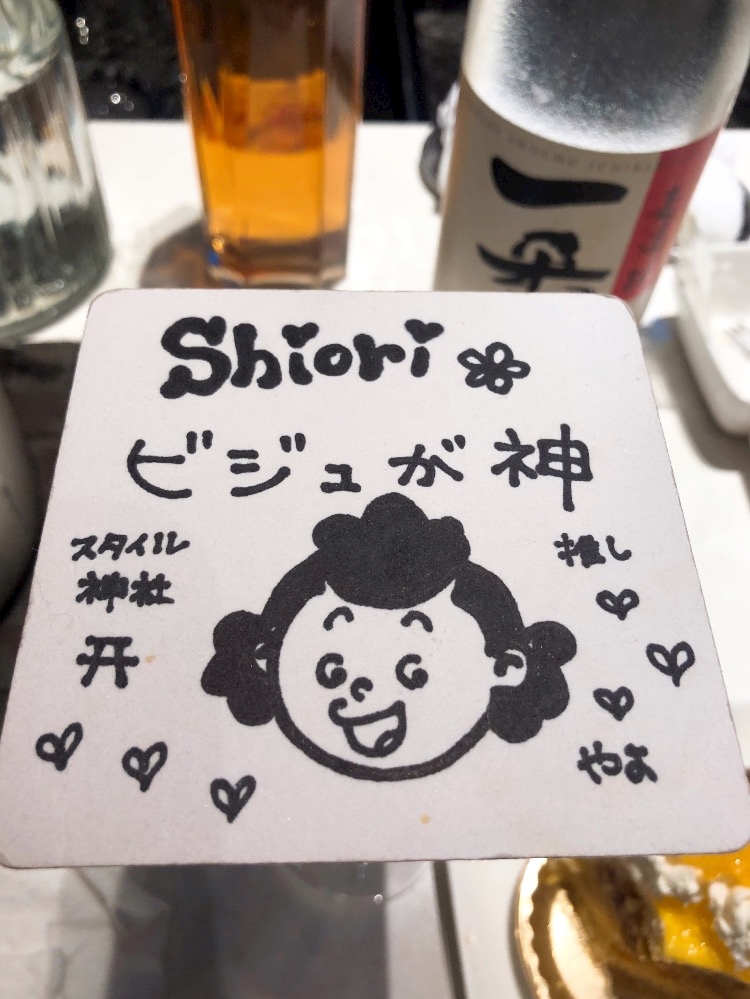 Shiori
ビジュが神
スタイル
神社
推し
やよ
一